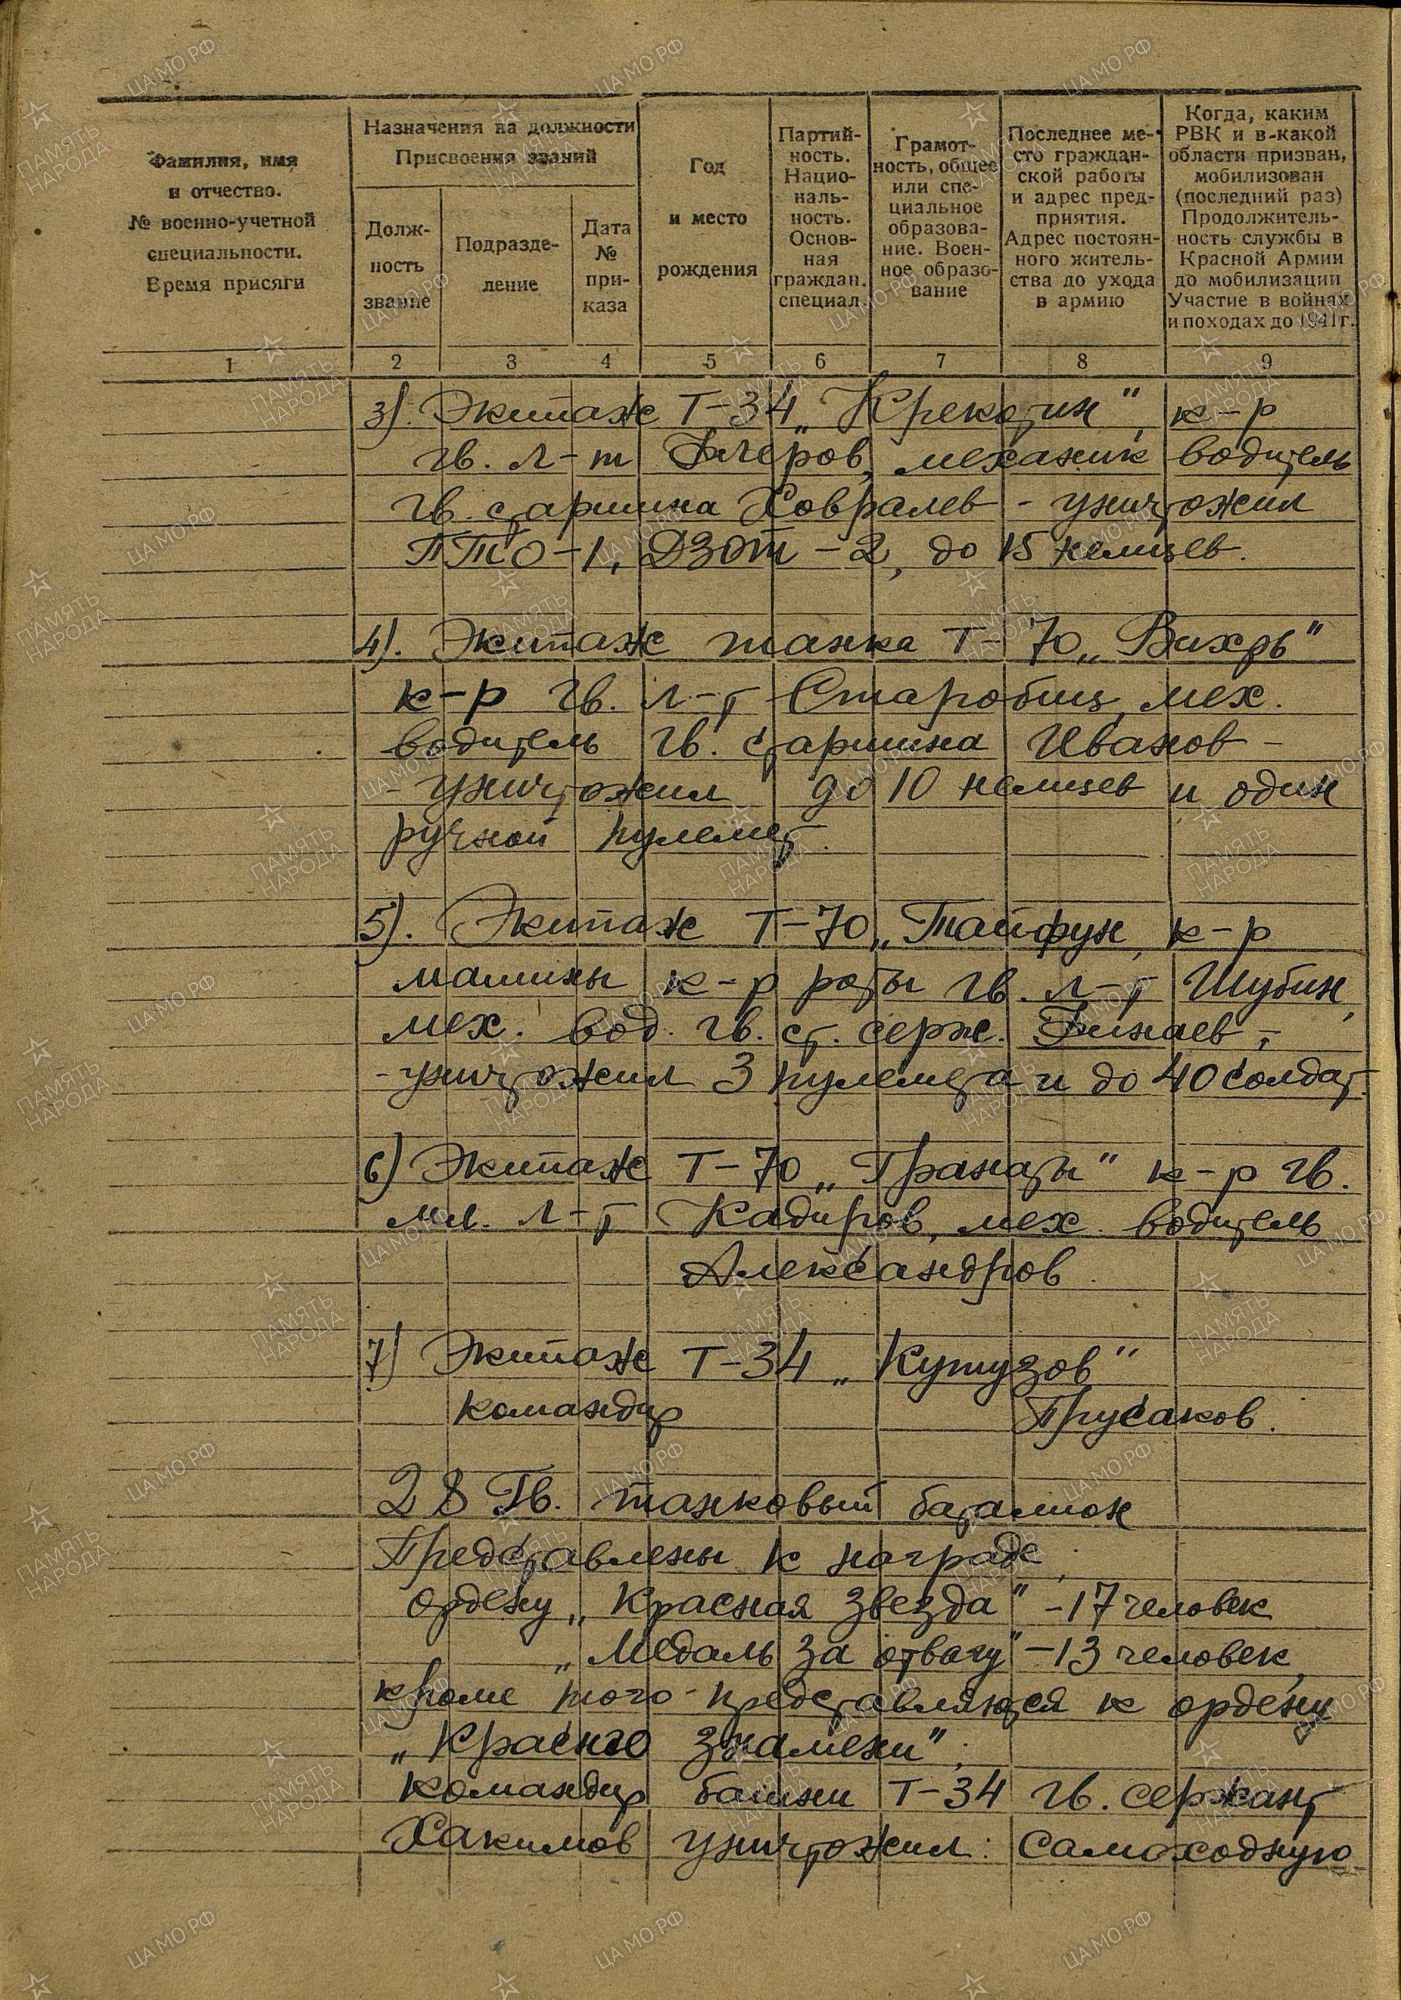 Фамилия, имя
и отчество.
№ военно-учетной
специальности.
Время присяги
Назначения на должности
Присвоения званий
Долж-
ность
звание
Подразде-
ление
Дата
№
при-
каза
Год
и место
рождения
Партий-
ность.
Нацио-
наль-
ность.
Основ-
ная
граждан.
специал.
Грамот-
ность, общее
или спе-
циальное
образова-
ние. Воен-
ное образо-
вание
Последнее ме-
сто граждан-
ской работы
и адрес пред-
приятия.
Адрес постоян-
ного житель-
ства до ухода
в армию
Когда, каким
РВК и в какой
области призван,
мобилизован
(последний раз)
Продолжитель-
ность службы в
Красной Армии
до мобилизации
Участие в войнах
и походах до 1941 г.
1 2 3 4 5 6 7 8 9
3). Экипаж Т-34 „Крекотин", к-р
гв. л-т механик водитель
гв. старшина Ховралев - уничтожил
ПТО-1, ДЗОТ-2, до 15 немцев.
4). Экипаж танка Т-70 „Вихрь"
к-р гв. л-т Старобищ, мех.
водитель гв. старшина Иванов -
- уничтожил до 10 немцев и один
ручной пулемет.
5). Экипаж Т-70 „Тайфун, к-р
машины к-р роты гв. л-т Шубин,
мех. вод. гв. ст. серж. -
- уничтожил 3 пулемета и до 40 солдат.
6) Экипаж Т-70 „Гранаты" к-р гв.
мл. л-т Кадиров, мех. водитель
Александров.
7) Экипаж Т-34 „Кутузов"
командир Прусаков.
28 Гв. танковый батальон
Представлены к награде,
ордену „Красная звезда" -17 человек
„Медаль за отвагу" -13 человек,
кроме того представляются к ордену
„Красного знамени",
командир башни Т-34 гв. сержант
Хакимов уничтожил: самоходную
ЦАМО РФ
ПАМЯТЬ
НАРОДА